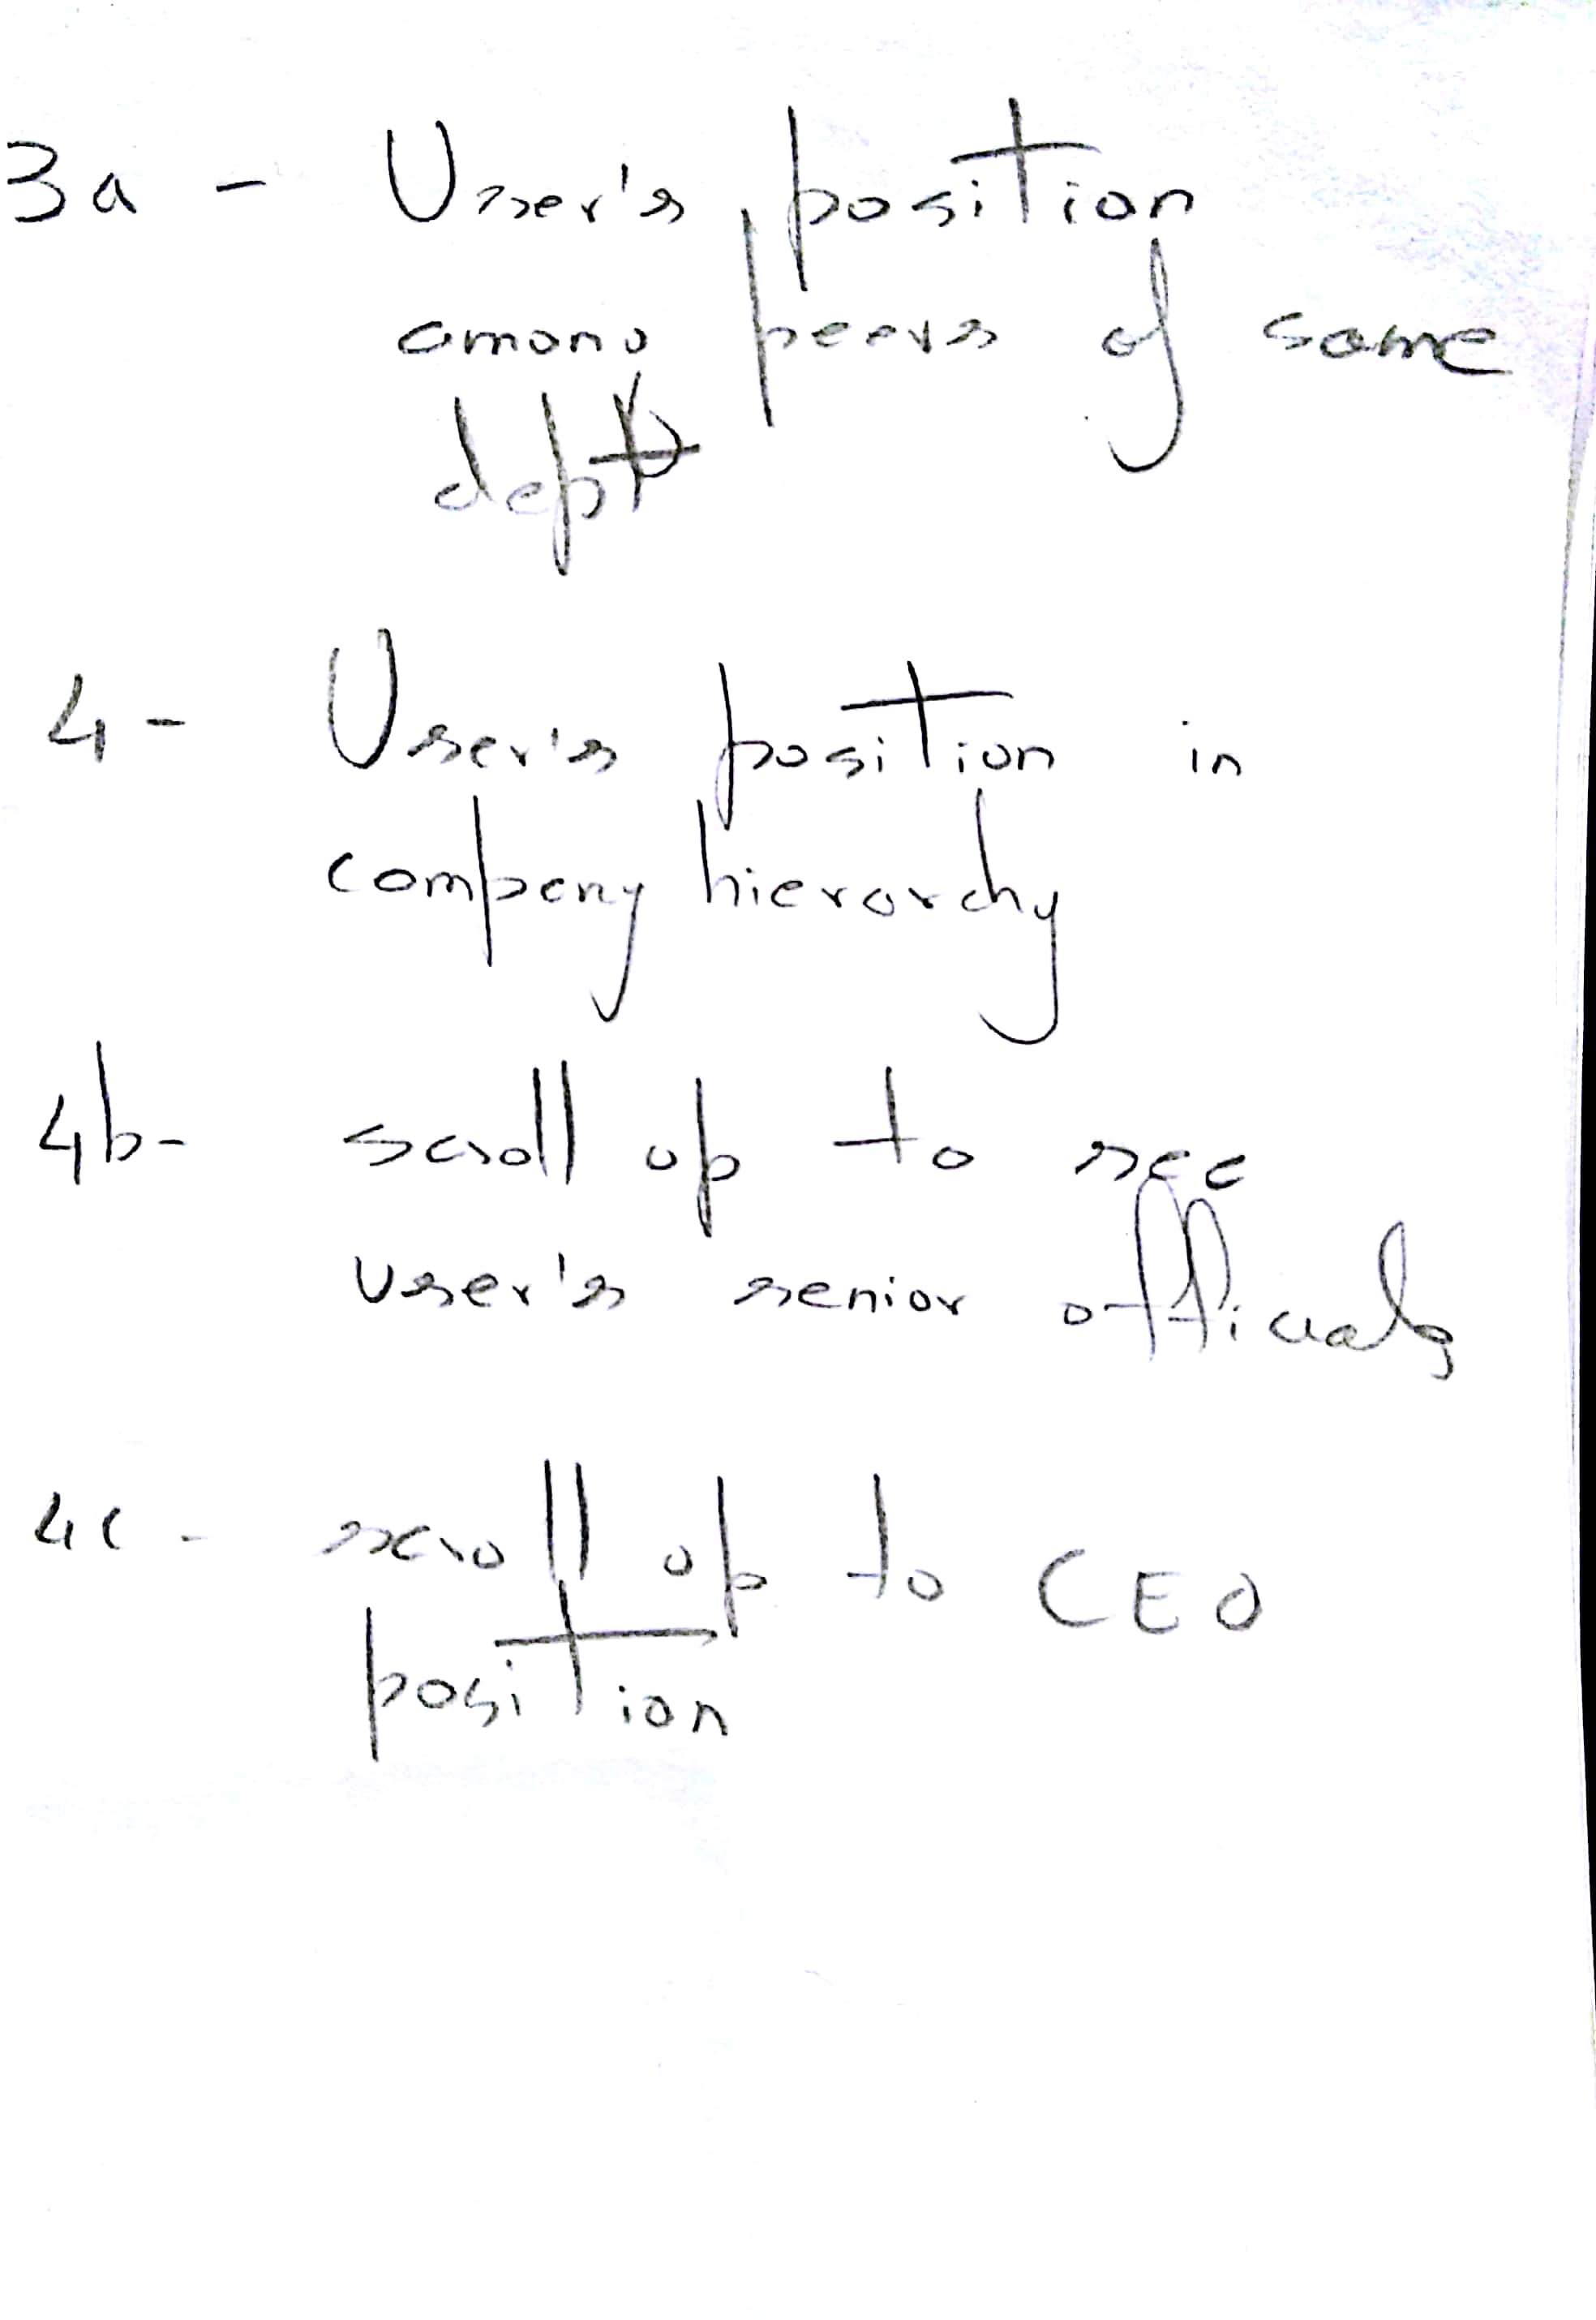 3a - User's position
among peers of same
dept
4 - User's position in
company hierarchy
4b- scroll up to see
user's senior officials
4c - scroll up to CEO
position